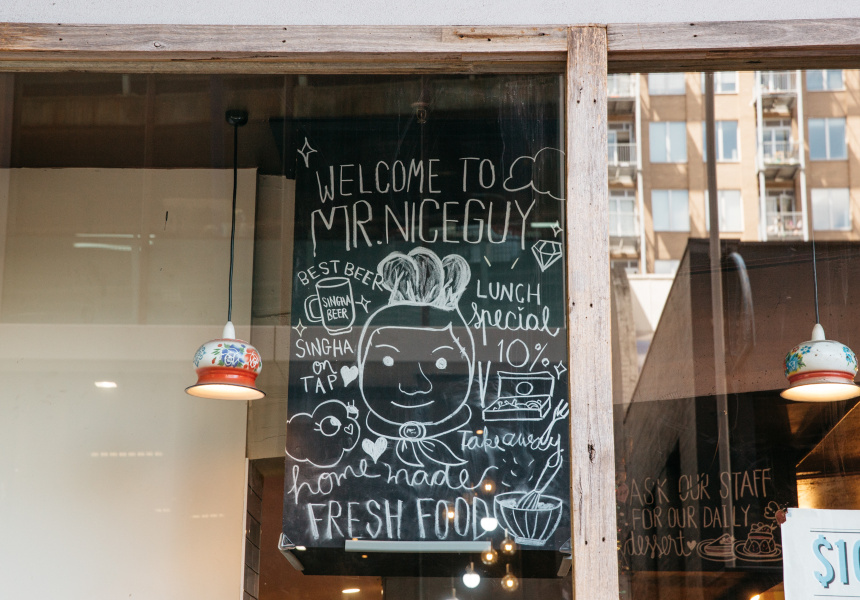 WELCOME TO
MR.NICEGUY
BEST BEER
SINGHA
BEER
SINGHA
on
TAP
LUNCH
special
10%
Takeaway
home made
FRESH FOOD
ASK OUR STAFF
FOR OUR DAILY
dessert